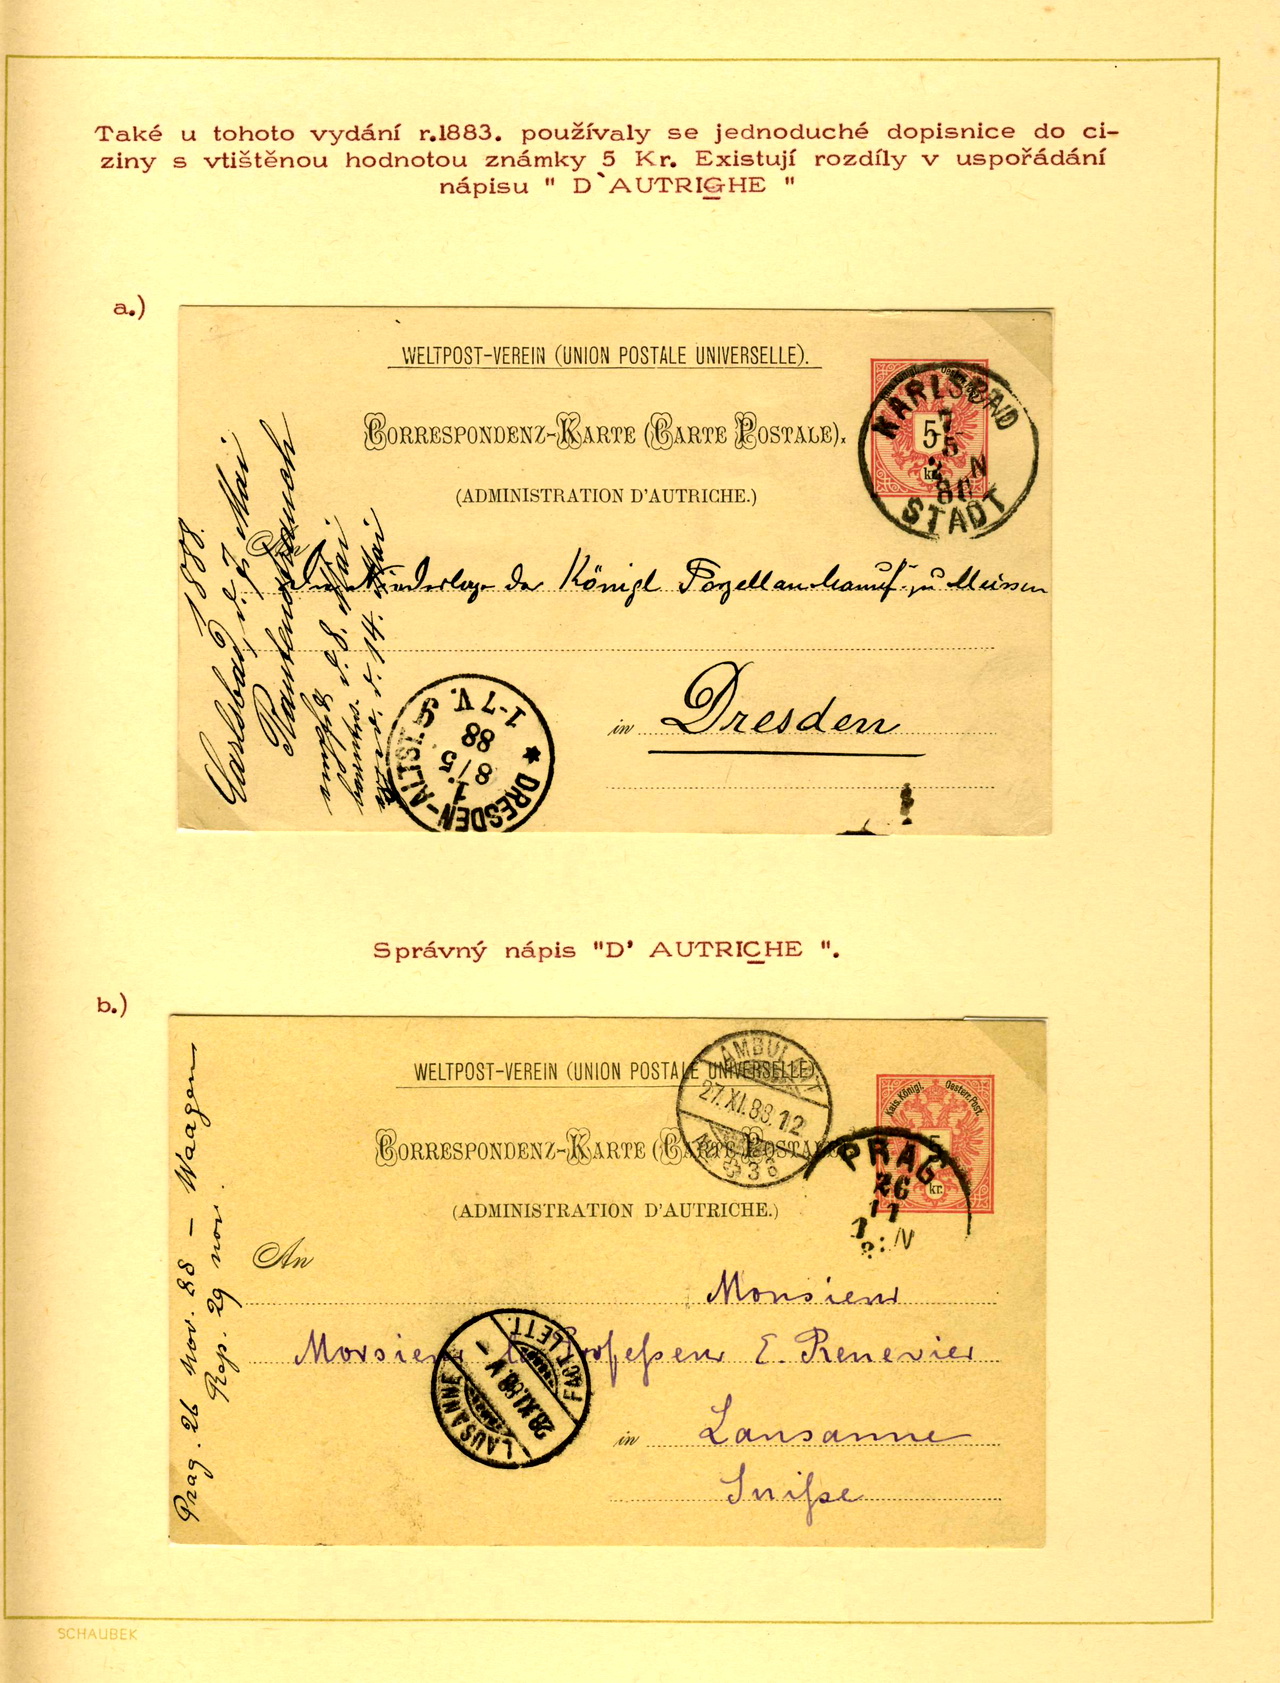 Také u tohoto vydání r.1883. používaly se jednoduché dopisnice do ci-
ziny s vtištěnou hodnotou známky 5 Kr. Existují rozdíly v uspořádání
nápisu " D`AUTRIGHE "
a.)
WELTPOST-VEREIN (UNION POSTALE UNIVERSELLE).
CORRESPONDENZ-KARTE (CARTE POSTALE).
(ADMINISTRATION D'AUTRICHE.)
5
kr.
KARLSBAD
7
5
STADT
Königl Porzellan Manuf. zu Meissen
in Dresden
Carlsbad, d. 7 Mai
1888.
Rautenstrauch
d. 8. Mai
d. 14. Mai
DRESDEN-ALTST.
8/5
88
1-7 V.
Správný nápis "D' AUTRICHE ".
b.)
WELTPOST-VEREIN (UNION POSTALE UNIVERSELLE).
CORRESPONDENZ-KARTE (CARTE POSTALE
(ADMINISTRATION D'AUTRICHE.)
Kais. Königl. Oesterr. Post.
5
kr.
AMBULANT
27.XI.88.12
PRAG
26
11
An
Monsieur
Monsieur le Professeur E. Renevier
in Lausanne
Suisse
LAUSANNE
28.XI.88.V
FACT. LETT.
Prag. 26 Nov. 88 — Waagen
Rep. 29 nov.
SCHAUBEK